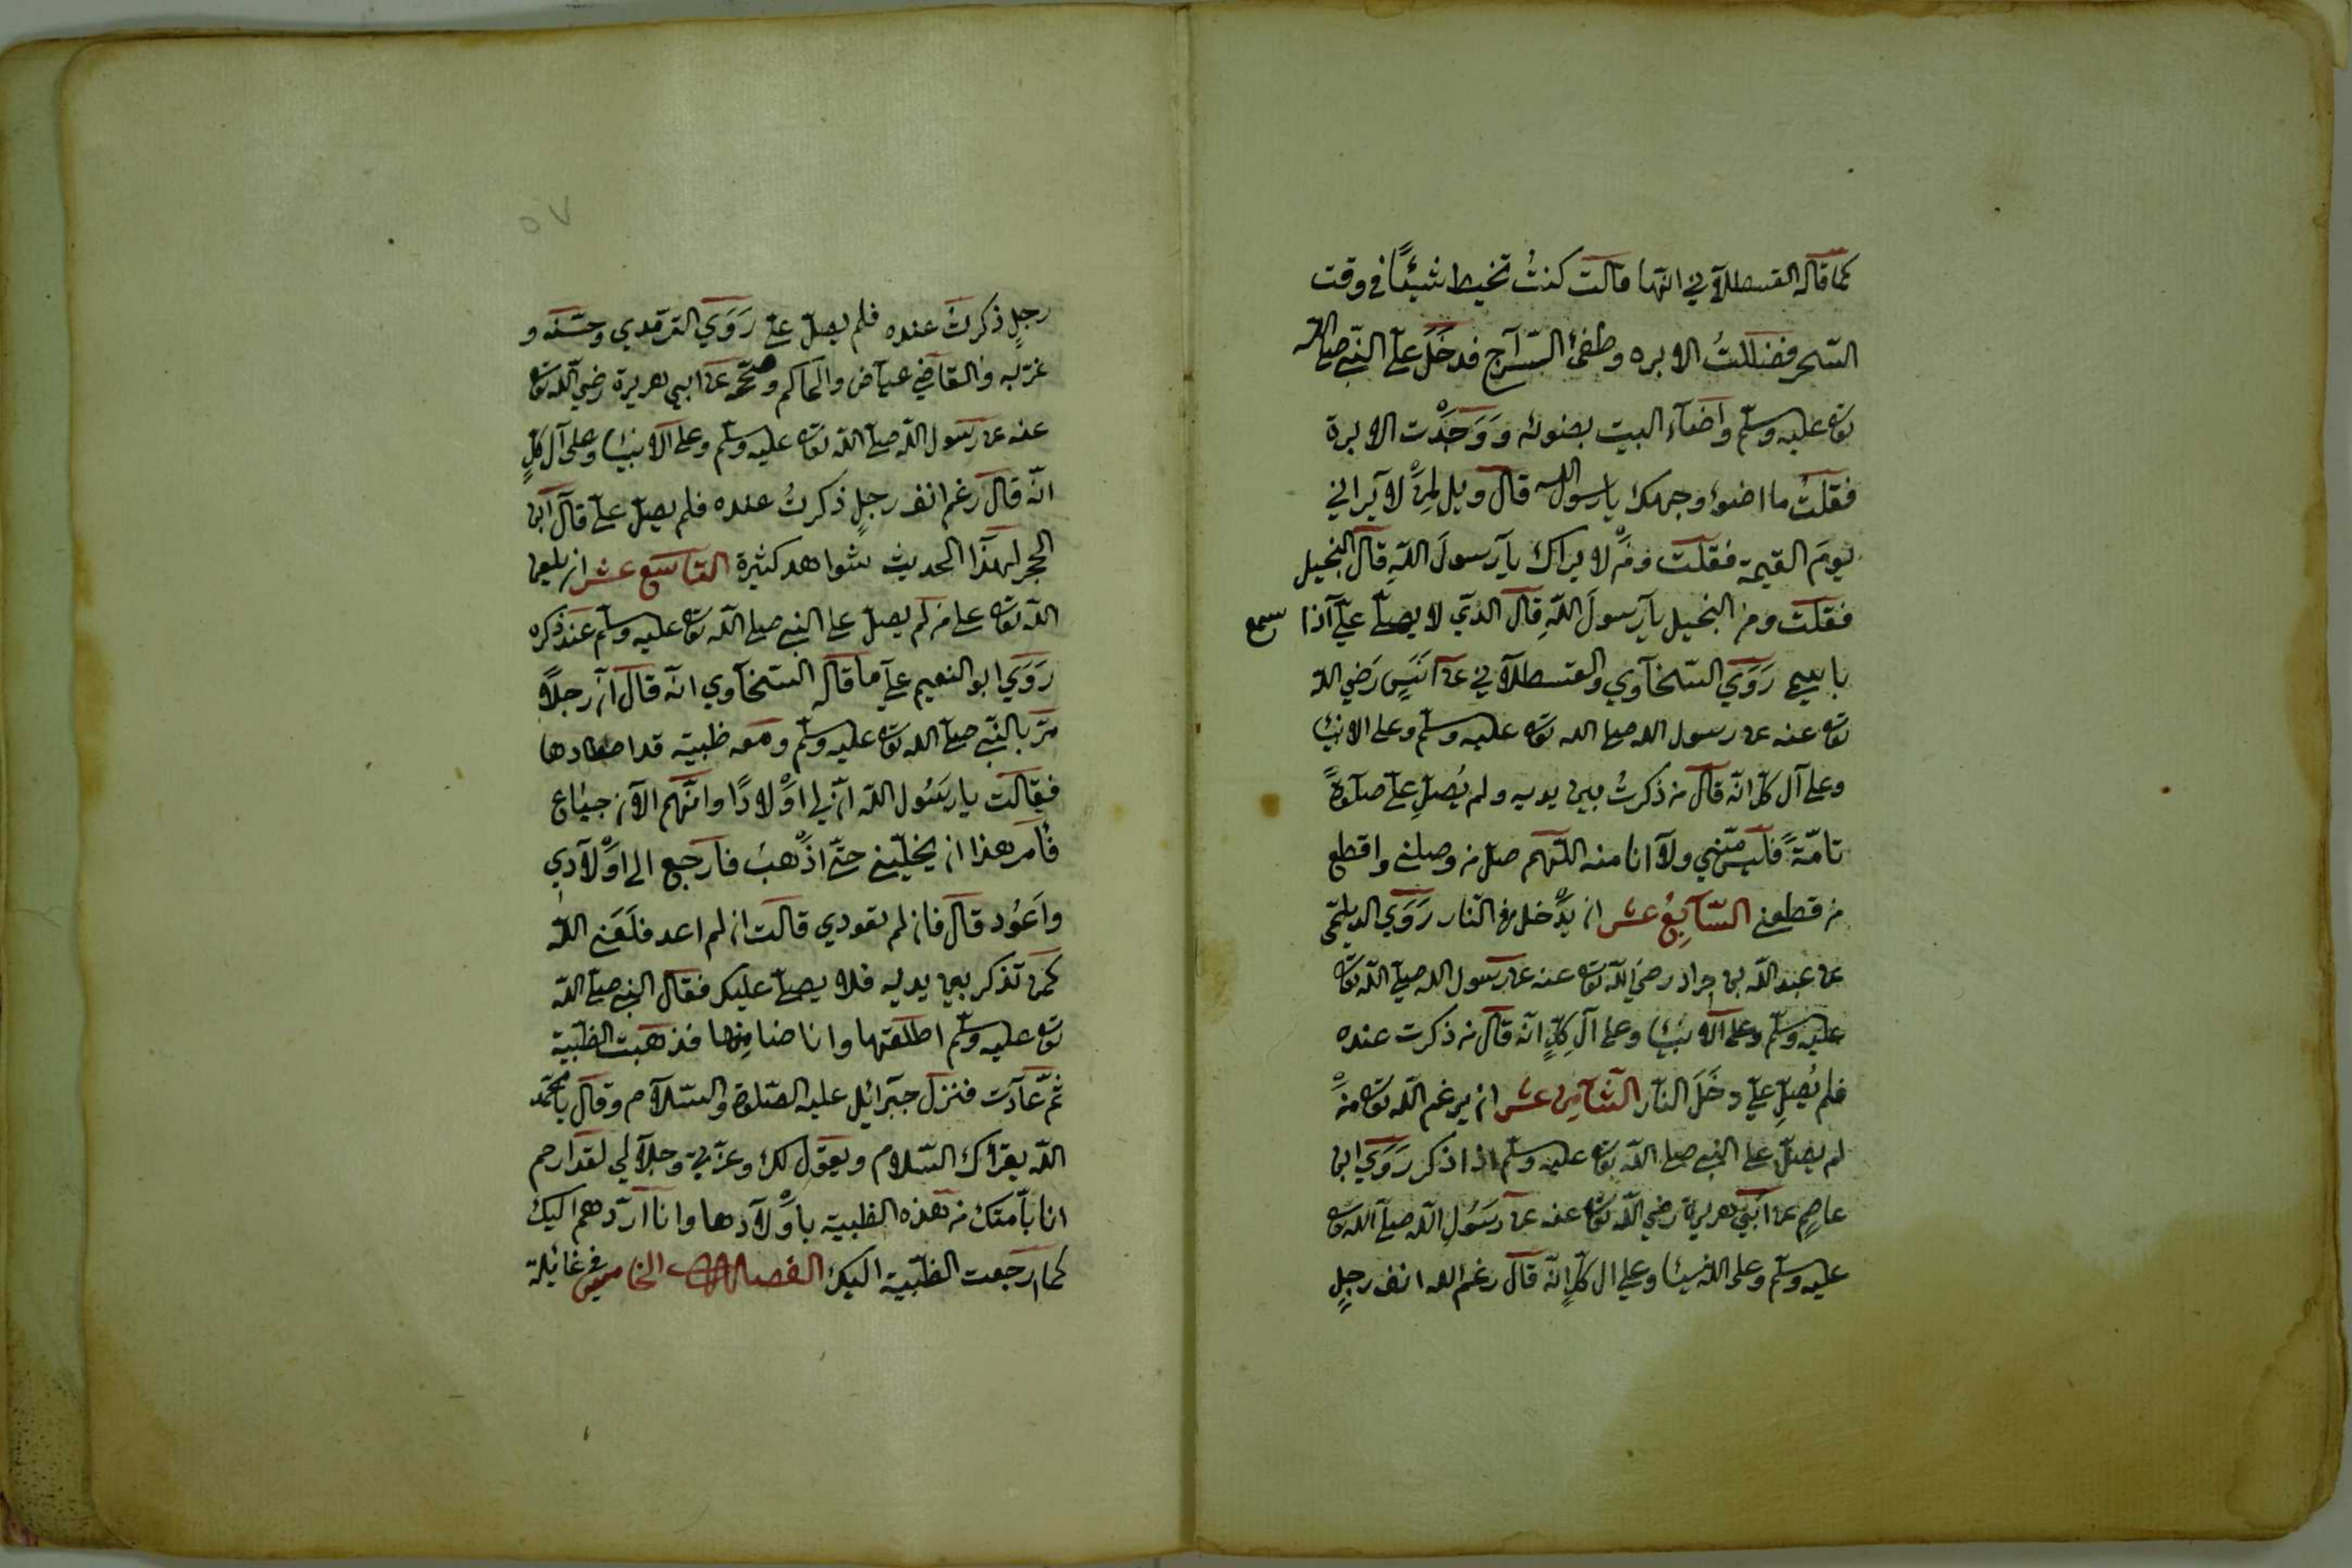 كما قاله القسطلاني انها قالت كنتُ تخيط شيئًا في وقت
السّحر فضللتُ الابره وطفئ السّراج فدخل علىّ النبيّ صلى الله
تعا عليه وسلّم واضاء البيت بضوئه ووجدت الابرة
فقلتُ ما اضوء وجهك يا رسول الله قال ويل لمن لا يراني
يوم القيمة فقلت ومن لا يراك يا رسول الله قال البخيل
فقلت ومن البخيل يا رسول الله قال الذي لا يصلّي عليّ اذا سمع
باسمي روي السّخاوي والقسطلاني عن انس رضي الله
تعا عنه عن رسول الله صلى الله تعا عليه وسلّم وعلى الانبيا
وعلى آل كل انّه قال من ذكرتُ بين يديه ولم يُصلِّ عليّ صلوةً
تامّةً فليس منّي ولا انا منه اللّهم صل من وصلني واقطع
من قطعني السّابع عشر ان يدخل في النّار روي الديلمّي
عن عبد الله بن جراد رضي الله تعا عنه عن رسول الله صلى الله تعا
عليه وسلّم وعلى الانبيا وعلى آل كلٍّ انّه قال من ذكرت عنده
فلم يُصلِّ عليّ دخل النّار الثّامن عشر ان يرغم الله تعا من
لم يصلّ على النبي صلى الله تعا عليه وسلّم اذا ذكر روي ابن
عاصم عن ابي هريرة رضي الله تعا عنه عن رسول الله صلى الله تعا
عليه وسلّم وعلى الانبيا وعلى ال كلٍّ انّه قال رغم الله انف رجلٍ
٥٧
رجلٍ ذكرتُ عنده فلم يصلّ عليّ روي الترمدي وحسّنه و
غرّبه والقاضي عياض والحاكم وصحّحه عن ابي هريرة رضي الله تعا
عنه عن رسول الله صلى الله تعا عليه وسلّم وعلى الانبيا وعلى آل كلٍّ
انّه قال رغم انف رجلٍ ذكرتُ عنده فلم يصلّ عليّ قال ابن
الحجر لهذا الحديث شواهد كثيرة التاسع عشر ان يلعن
الله تعا على من لم يصلّ على النبي صلى الله تعا عليه وسلّم عند ذكره
روي ابو النعيم على ما قاله السّخاوي انّه قال انّ رجلاً
مرّ بالنّبي صلى الله تعا عليه وسلّم ومعه ظبية قد اصطادها
فقالت يا رسول الله انّ لي اولادًا وانّهم الآن جياع
فأمر هذا ان يخلّيني حتّى اذهب فارجع الى اولادي
واعود قال فان لم تعودي قالت ان لم اعد فلعني الله
كمن تذكر بين يديه فلا يصلّي عليك فقال النبي صلى الله
تعا عليه وسلّم اطلقتها وانا ضامنها فذهبت الظبية
ثم عادت فنزل جبرائل عليه الصّلوة والسّلام وقال يا محمّد
الله يقرأك السّلام ويقول لك وعزّتي وجلالي لقد ارحم
انا بامتك من هذه الظبية باولادها وانا اردّهم اليك
كما رجعت الظبية اليك الفصل الخامس في غائلة